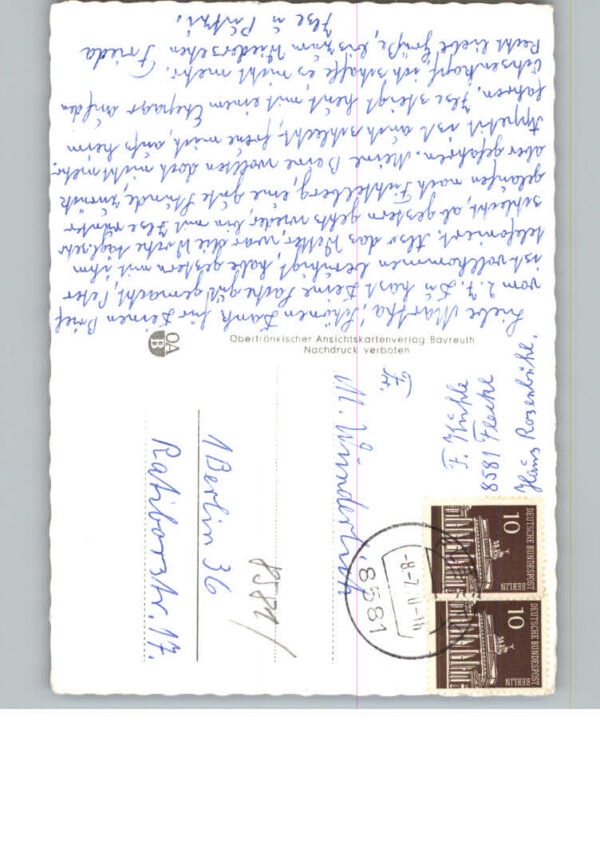 Liebe Martha, Schönen Dank für Deinen Brief
vom 2.7. Du hast Deine Sache gut gemacht, Peter
ist vollkommen beruhigt, habe gestern mit ihm
telefoniert. Also das Wetter, war die Woche tägl. sehr
schlecht, ab gestern gehts wieder, bin mit Ilse runter
gelaufen nach Fichtelberg, eine gute Stunde, zurück
aber gefahren. Meine Beine wollten doch nicht mehr.
Appetit ist auch schlecht, freue mich, aufs heim
fahren, Ilse steigt heut, mit einem Ehepaar auf den
Ochsenkopf, ich schaffe es nicht mehr.
Recht liebe Grüße, bis zum Wiedersehen Frieda
Ilse u.
OAB
Oberfränkischer Ansichtskartenverlag Bayreuth
Nachdruck verboten
F. Kühle
8581 Fleckl
Haus Rosenbühl.
Fr.
M. Wunderlich
1 Berlin 36
Ratiborstr. 17.
8581
-8.-7.
8581
10
DEUTSCHE BUNDESPOST
BERLIN
10
DEUTSCHE BUNDESPOST
BERLIN